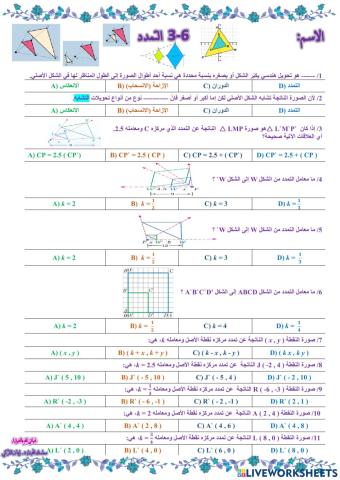 الاسم:
3-6 التمدد
1/ ------- هو تحويل هندسي يكبر الشكل أو يصغره بنسبة محددة هي نسبة أحد أطوال الصورة إلى الطول المناظر لها في الشكل الأصلي.
A) الانعكاس B) الإزاحة (الانسحاب) C) الدوران D) التمدد
2/ لأن الصورة الناتجة تشابه الشكل الأصلي لكن إما أكبر أو أصغر فإن ------- نوع من أنواع تحويلات التشابه
A) الانعكاس B) الإزاحة (الانسحاب) C) الدوران D) التمدد
3/ إذا كان △ L`M`P` هو صورة △ LMP الناتجة عن التمدد الذي مركزه C ومعامله 2.5.
أي العلاقات الآتية صحيحة؟
A) CP = 2.5 ( CP` ) B) CP` = 2.5 ( CP ) C) CP = 2.5 + ( CP` ) D) CP` = 2.5 + ( CP )
4/ ما معامل التمدد من الشكل W إلى الشكل W` ؟
A) k = 2 B) k = 1/2 C) k = 3 D) k = 1/3
5/ ما معامل التمدد من الشكل W إلى الشكل W` ؟
A) k = 2 B) k = 1/2 C) k = 3 D) k = 1/3
6/ ما معامل التمدد من الشكل ABCD إلى الشكل A`B`C`D` ؟
A) k = 2 B) k = 1/2 C) k = 4 D) k = 1/4
7/ صورة النقطة ( x , y ) الناتجة عن تمدد مركزه نقطة الأصل ومعامله k، هي:
A) ( x , y ) B) ( k + x , k + y ) C) ( k - x , k - y ) D) ( k x , k y )
8/ صورة النقطة J ( -2 , 4 ) الناتجة عن تمدد مركزه نقطة الأصل ومعامله k = 2.5، هي:
A) J` ( 5 , 10 ) B) J` ( - 5 , 10 ) C) J` ( - 5 , 4 ) D) J` ( - 2 , 10 )
A) R` ( -2 , -3 ) B) R` ( -6 , -1 ) C) R` ( -2 , -1 ) D) R` ( 2 , 1 )
10/ صورة النقطة A ( 2 , 4 ) الناتجة عن تمدد مركزه نقطة الأصل ومعامله k = 2، هي:
A) A` ( 4 , 4 ) B) A` ( 2 , 8 ) C) A` ( 4 , 6 ) D) A` ( 4 , 8 )
A) L` ( 2 , 0 ) B) L` ( 4 , 0 ) C) L` ( 6 , 0 ) D) L` ( 8 , 0 )
LIVEWORKSHEETS